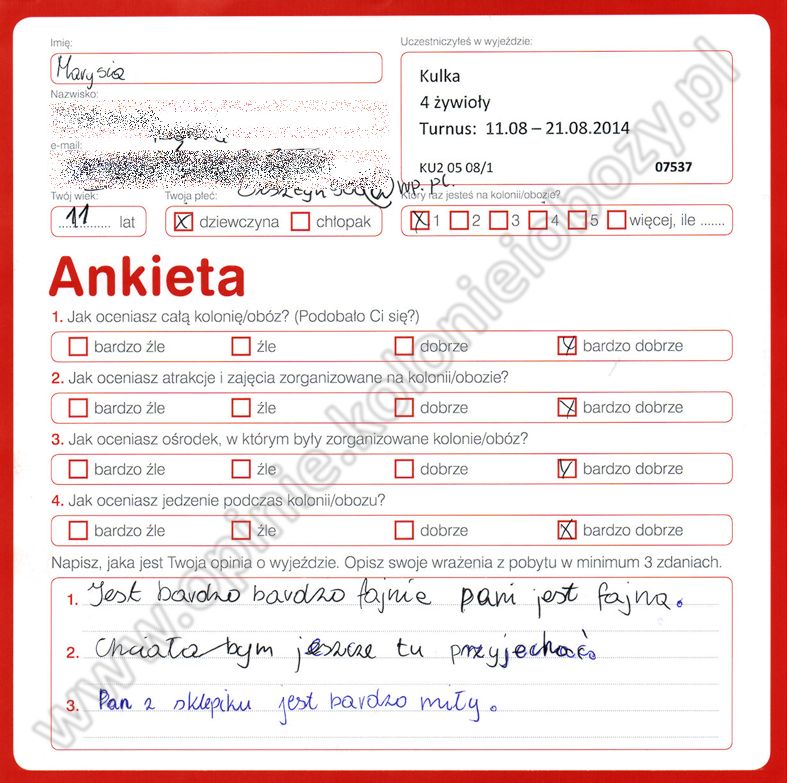 Imię:
Uczestniczyłeś w wyjeździe:
Marysia
Kulka
4 żywioły
Turnus: 11.08 – 21.08.2014
KU2 05 08/1 07537
Nazwisko:
e-mail:
wp.pl.
Twój wiek:
Twoja płeć:
Który raz jesteś na kolonii/obozie?
11 lat
X dziewczyna
chłopak
X 1 2 3 4 5 więcej, ile .......
Ankieta
1. Jak oceniasz całą kolonię/obóz? (Podobało Ci się?)
bardzo źle źle dobrze X bardzo dobrze
2. Jak oceniasz atrakcje i zajęcia zorganizowane na kolonii/obozie?
bardzo źle źle dobrze X bardzo dobrze
3. Jak oceniasz ośrodek, w którym były zorganizowane kolonie/obóz?
bardzo źle źle dobrze X bardzo dobrze
4. Jak oceniasz jedzenie podczas kolonii/obozu?
bardzo źle źle dobrze X bardzo dobrze
Napisz, jaka jest Twoja opinia o wyjeździe. Opisz swoje wrażenia z pobytu w minimum 3 zdaniach.
1. Jest bardzo bardzo fajnie pani jest fajna.
2. Chciała bym jeszcze tu przyjechać.
3. Pan z sklepiku jest bardzo miły.
www.opinie.kolonieiobozy.pl